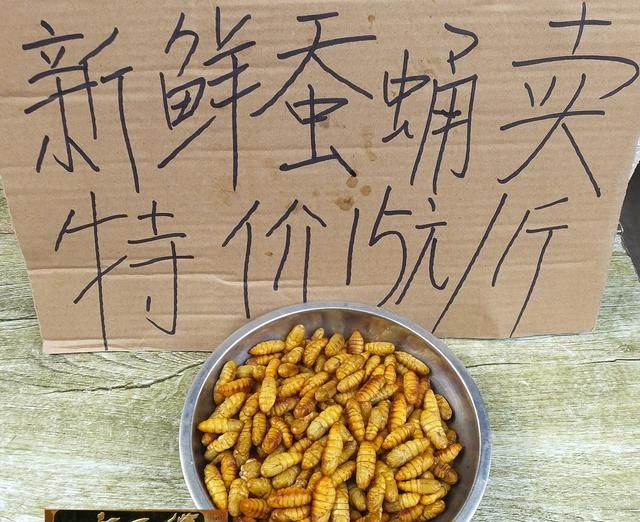 新鲜蚕蛹卖
特价15元/斤